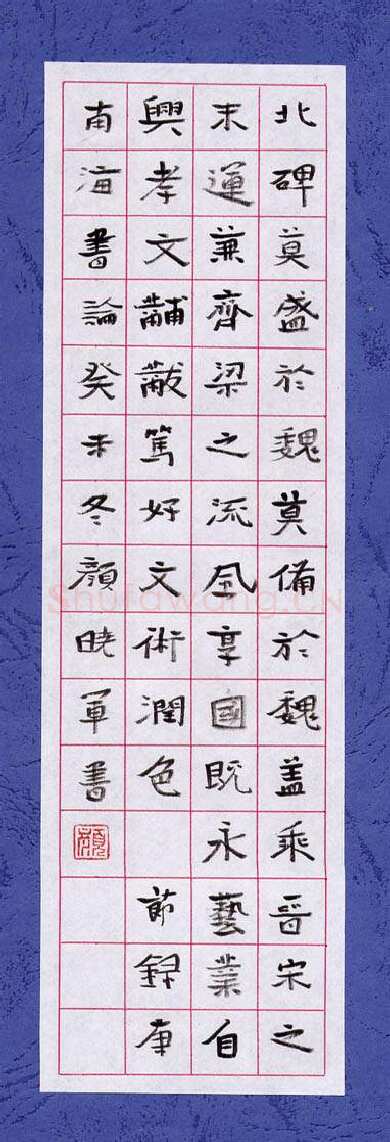 北碑莫盛於魏莫備於魏盖乘晉宋之
末運兼齊梁之流風享國既永藝業自
興孝文黼黻篤好文術潤色 節錄康
南海書論癸未冬顔曉軍書
顔
shufawang.CN